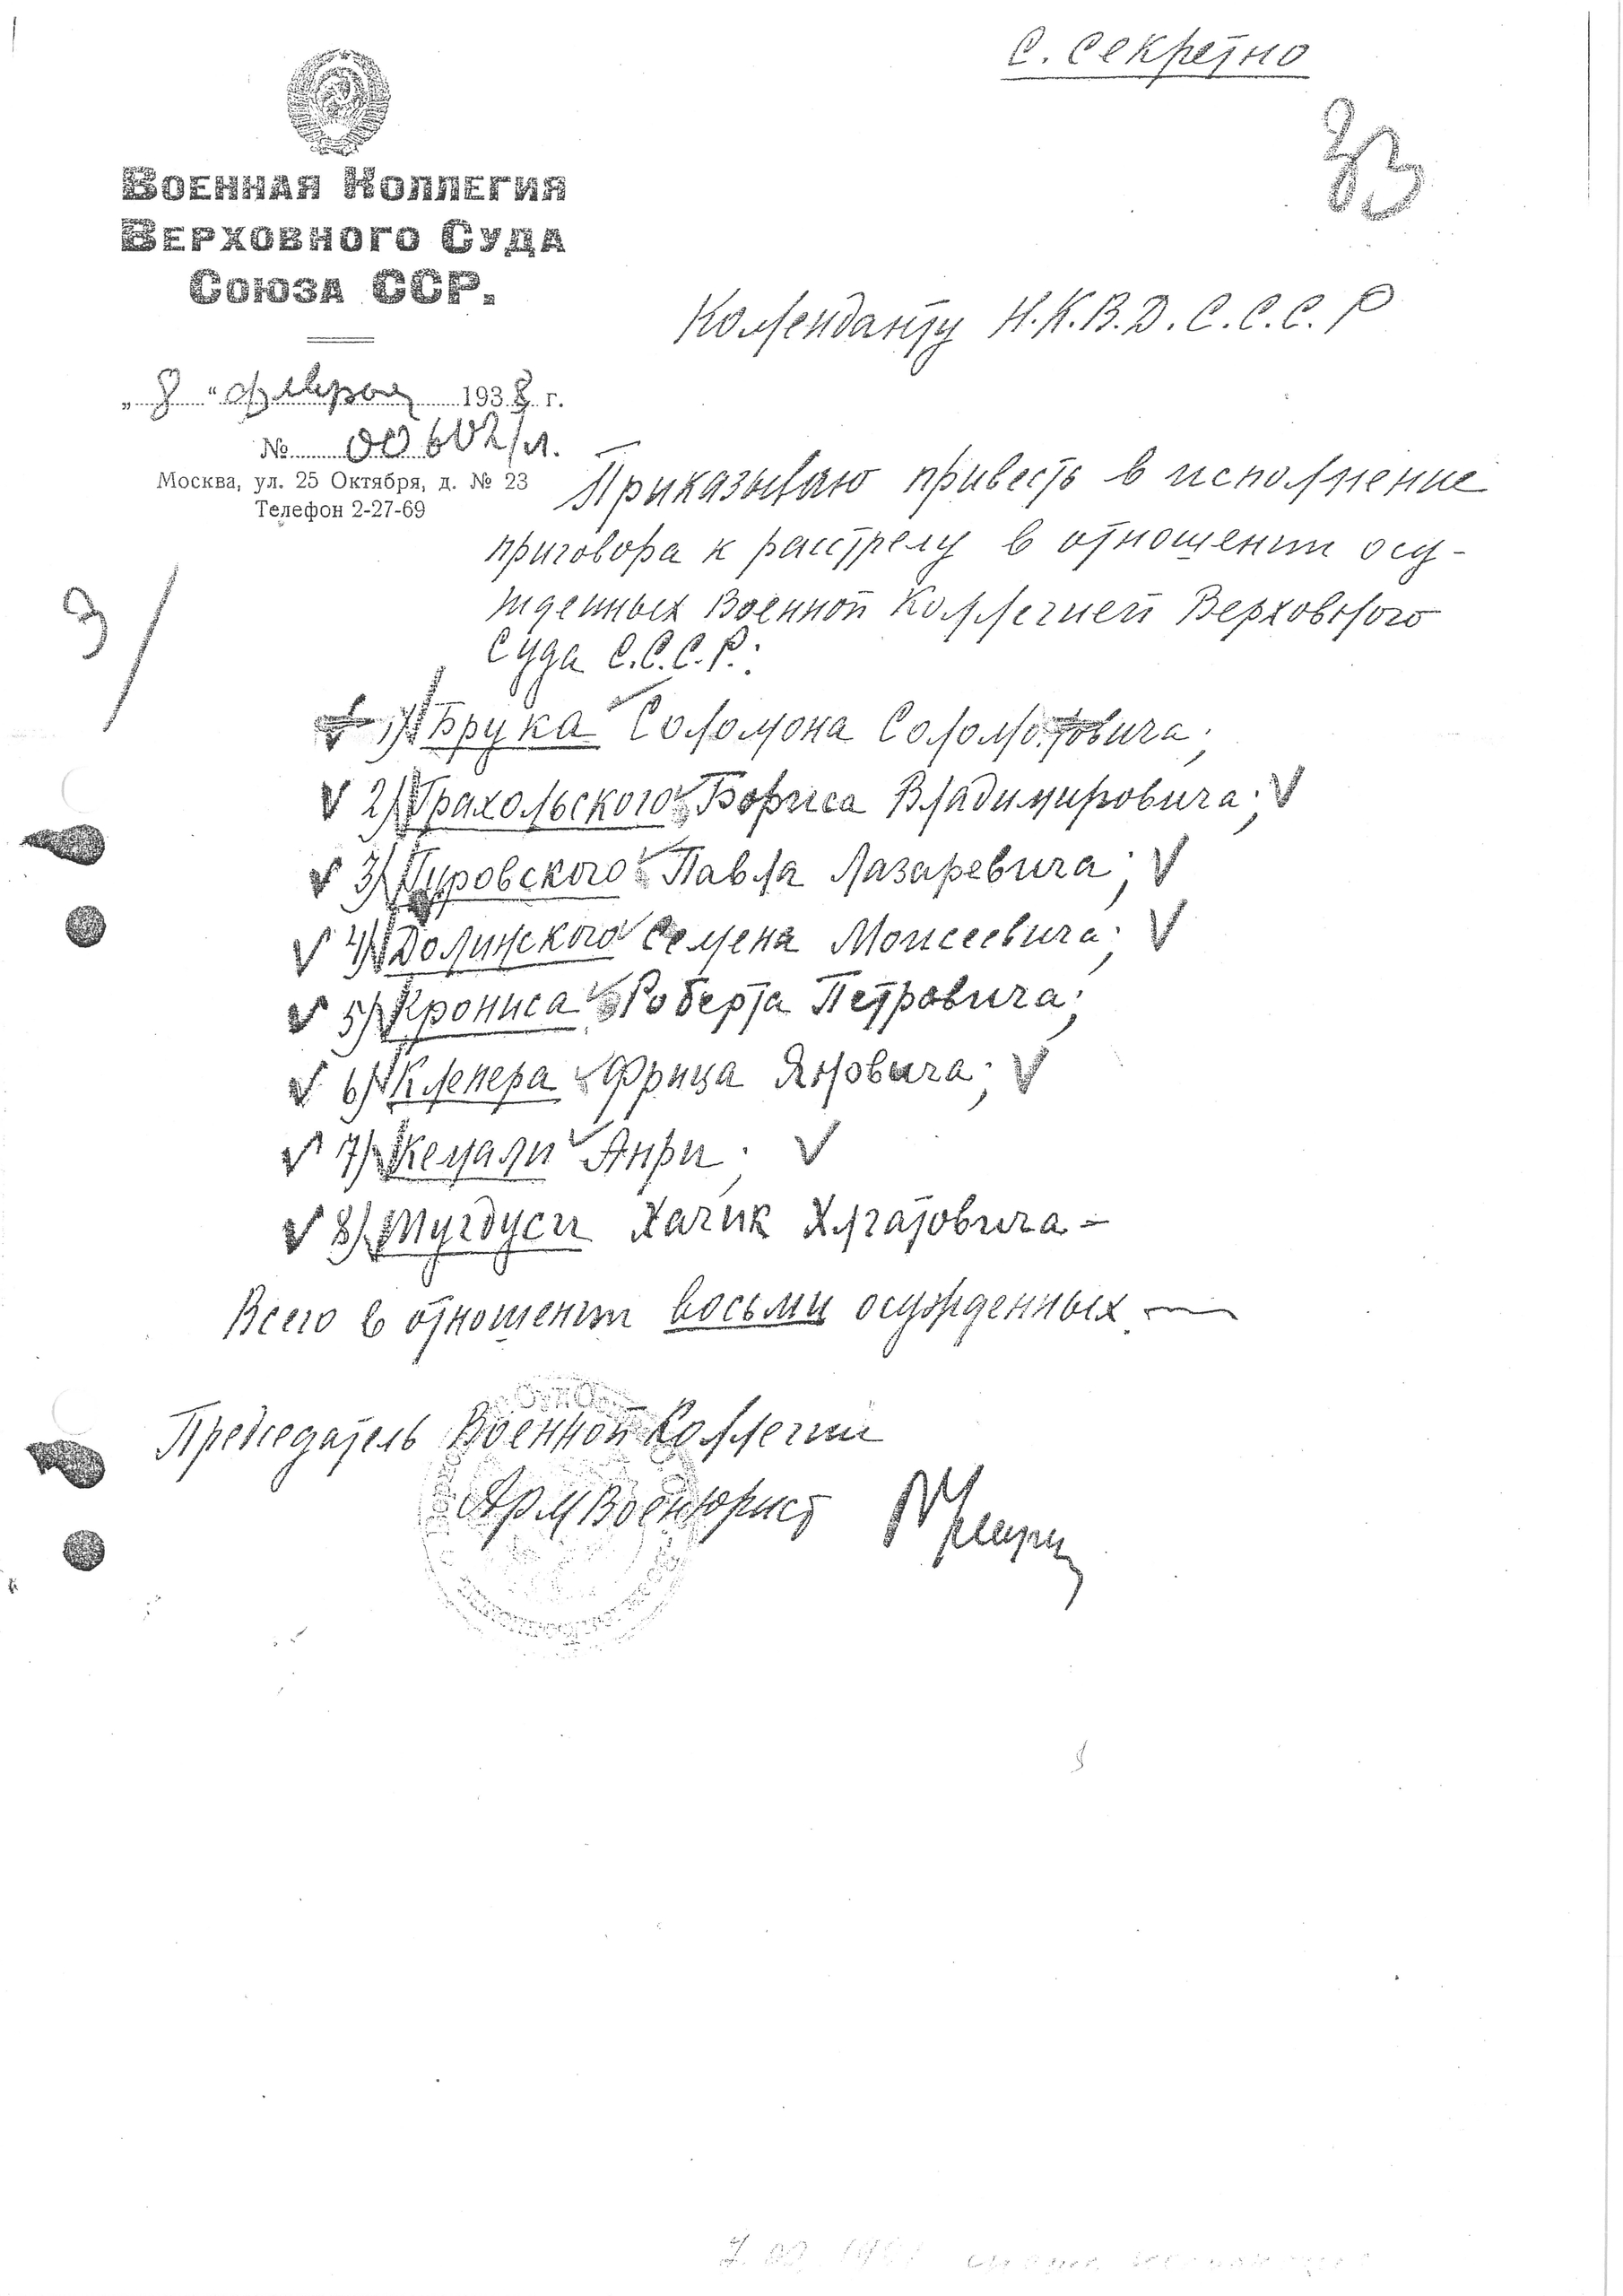 С. Секретно
33
Военная Коллегия
Верховного Суда
Союза ССР.
Коменданту Н.К.В.Д. С.С.С.Р
„ 8 “ февраля 1938 г.
№ 00602/л.
Москва, ул. 25 Октября, д. № 23
Телефон 2-27-69
Приказываю привесть в исполнение
приговора к расстрелу в отношении осу-
жденных Военной Коллегией Верховного
Суда С.С.С.Р.:
1) Брука Соломона Соломоновича;
2) Грахольского Бориса Владимировича;
3) Гуровского Павла Лазаревича;
4) Долинского Семена Моисеевича;
5) Крониса Роберта Петровича;
6) Клепера Фрица Яновича;
7) Кемали Анри;
8) Мугдуси Хачик
Всего в отношении восьми осужденных
Председатель Военной Коллегии
АрмВоенюрист